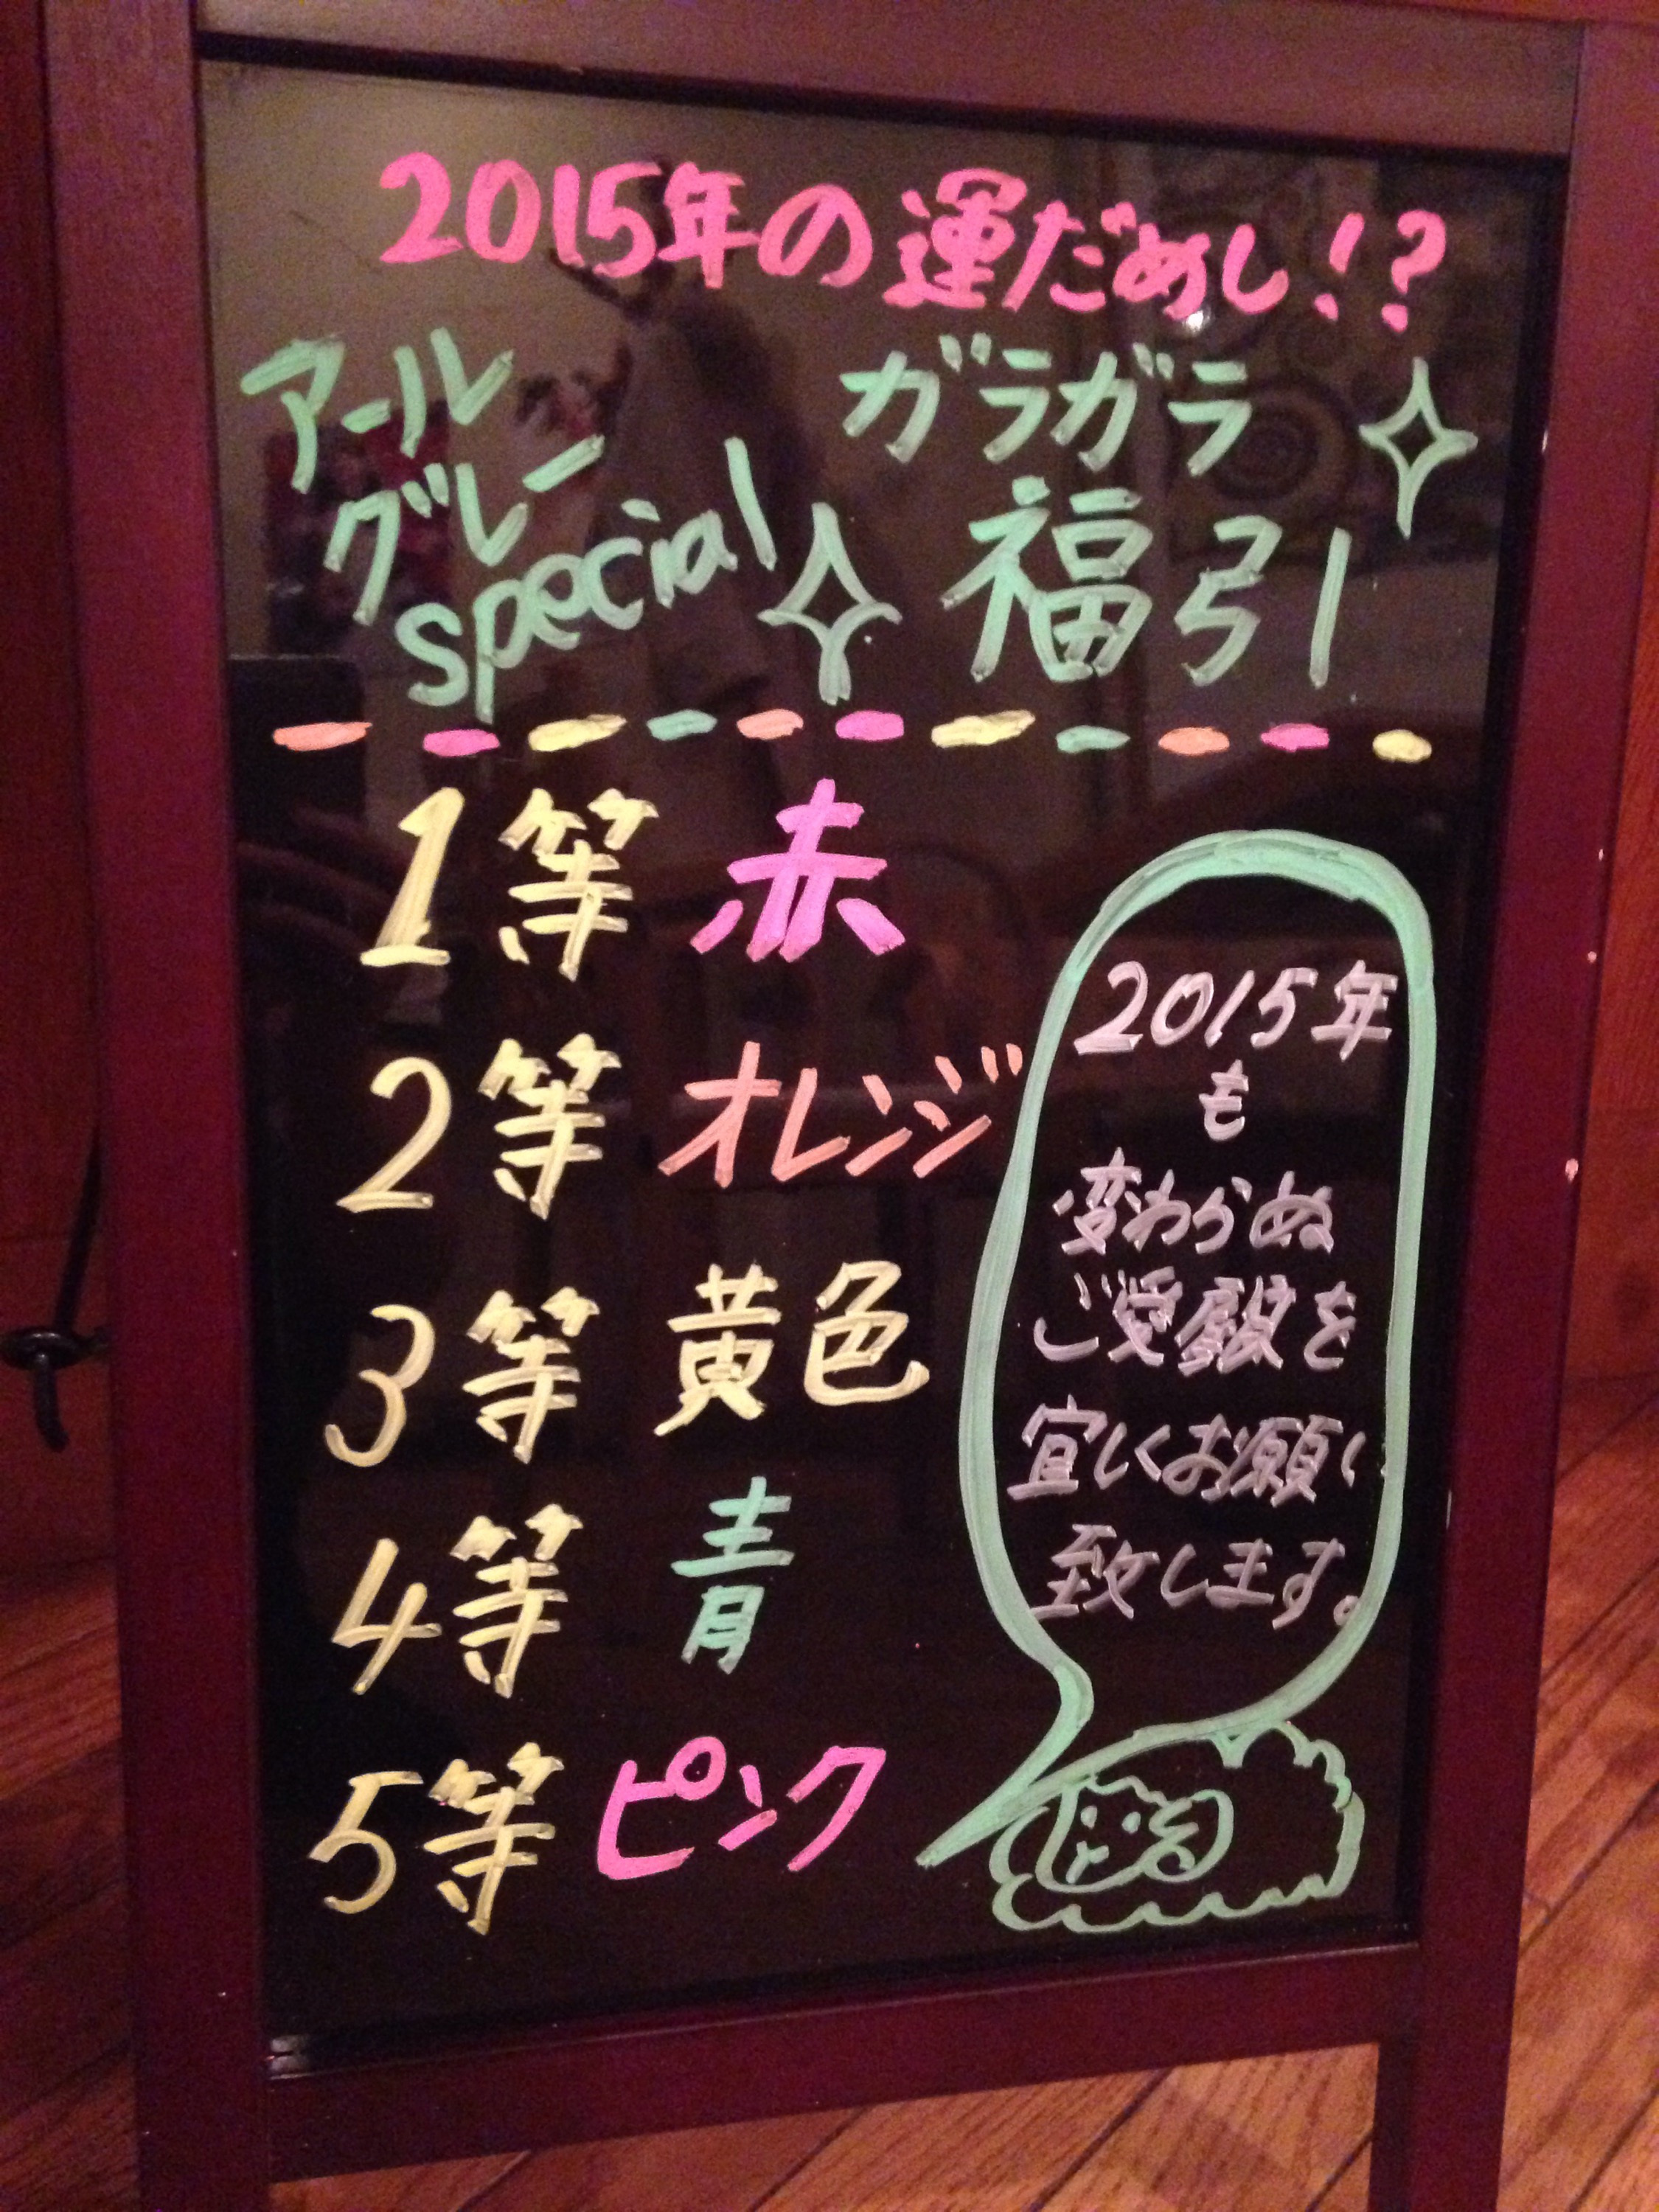 2015年の運だめし!?
アール
グレー
special
ガラガラ
福引
1等 赤
2等 オレンジ
3等 黄色
4等 青
5等 ピンク
2015年
も
変わらぬ
ご愛顧を
宜しくお願い
致します。